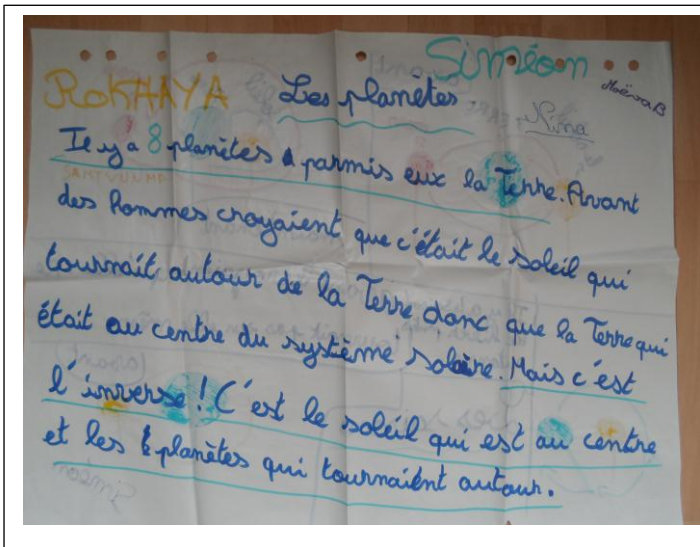 Siméon
ROKHAYA Les planètes Maëssa B
Nina
Il y a 8 planètes parmis eux la Terre. Avant
des hommes croyaient que c'était le soleil qui
tournait autour de la Terre donc que la Terre qui
était au centre du système solaire. Mais c'est
l'inverse ! C'est le soleil qui est au centre
et les planètes qui tournaient autour.
Siméon